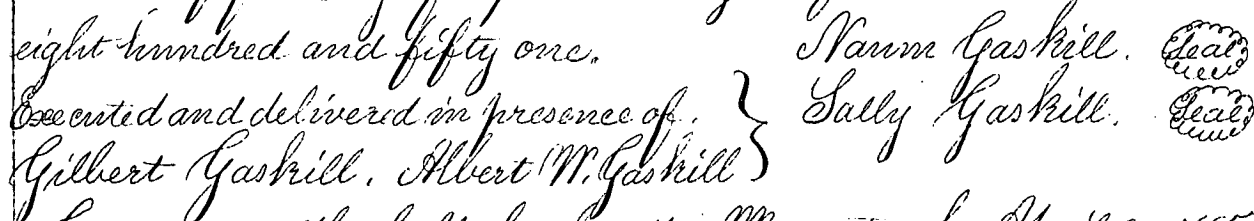 eight hundred and fifty one. Naum Gaskill. Seal
Executed and delivered in presence of. } Sally Gaskill. Seal
Gilbert Gaskill. Albert W. Gaskill